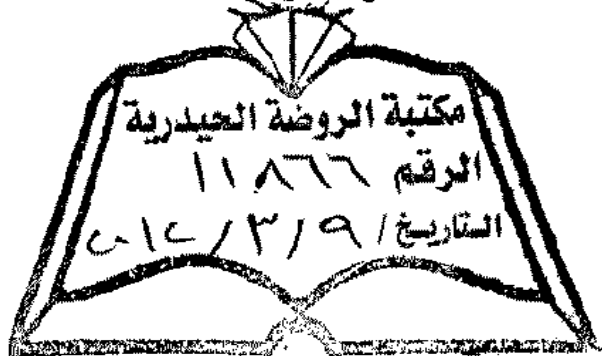 مكتبة الروضة الحيدرية
الرقم ١١٨٦٦
التاريخ / ٩ / ٣ / ٢٠١٢